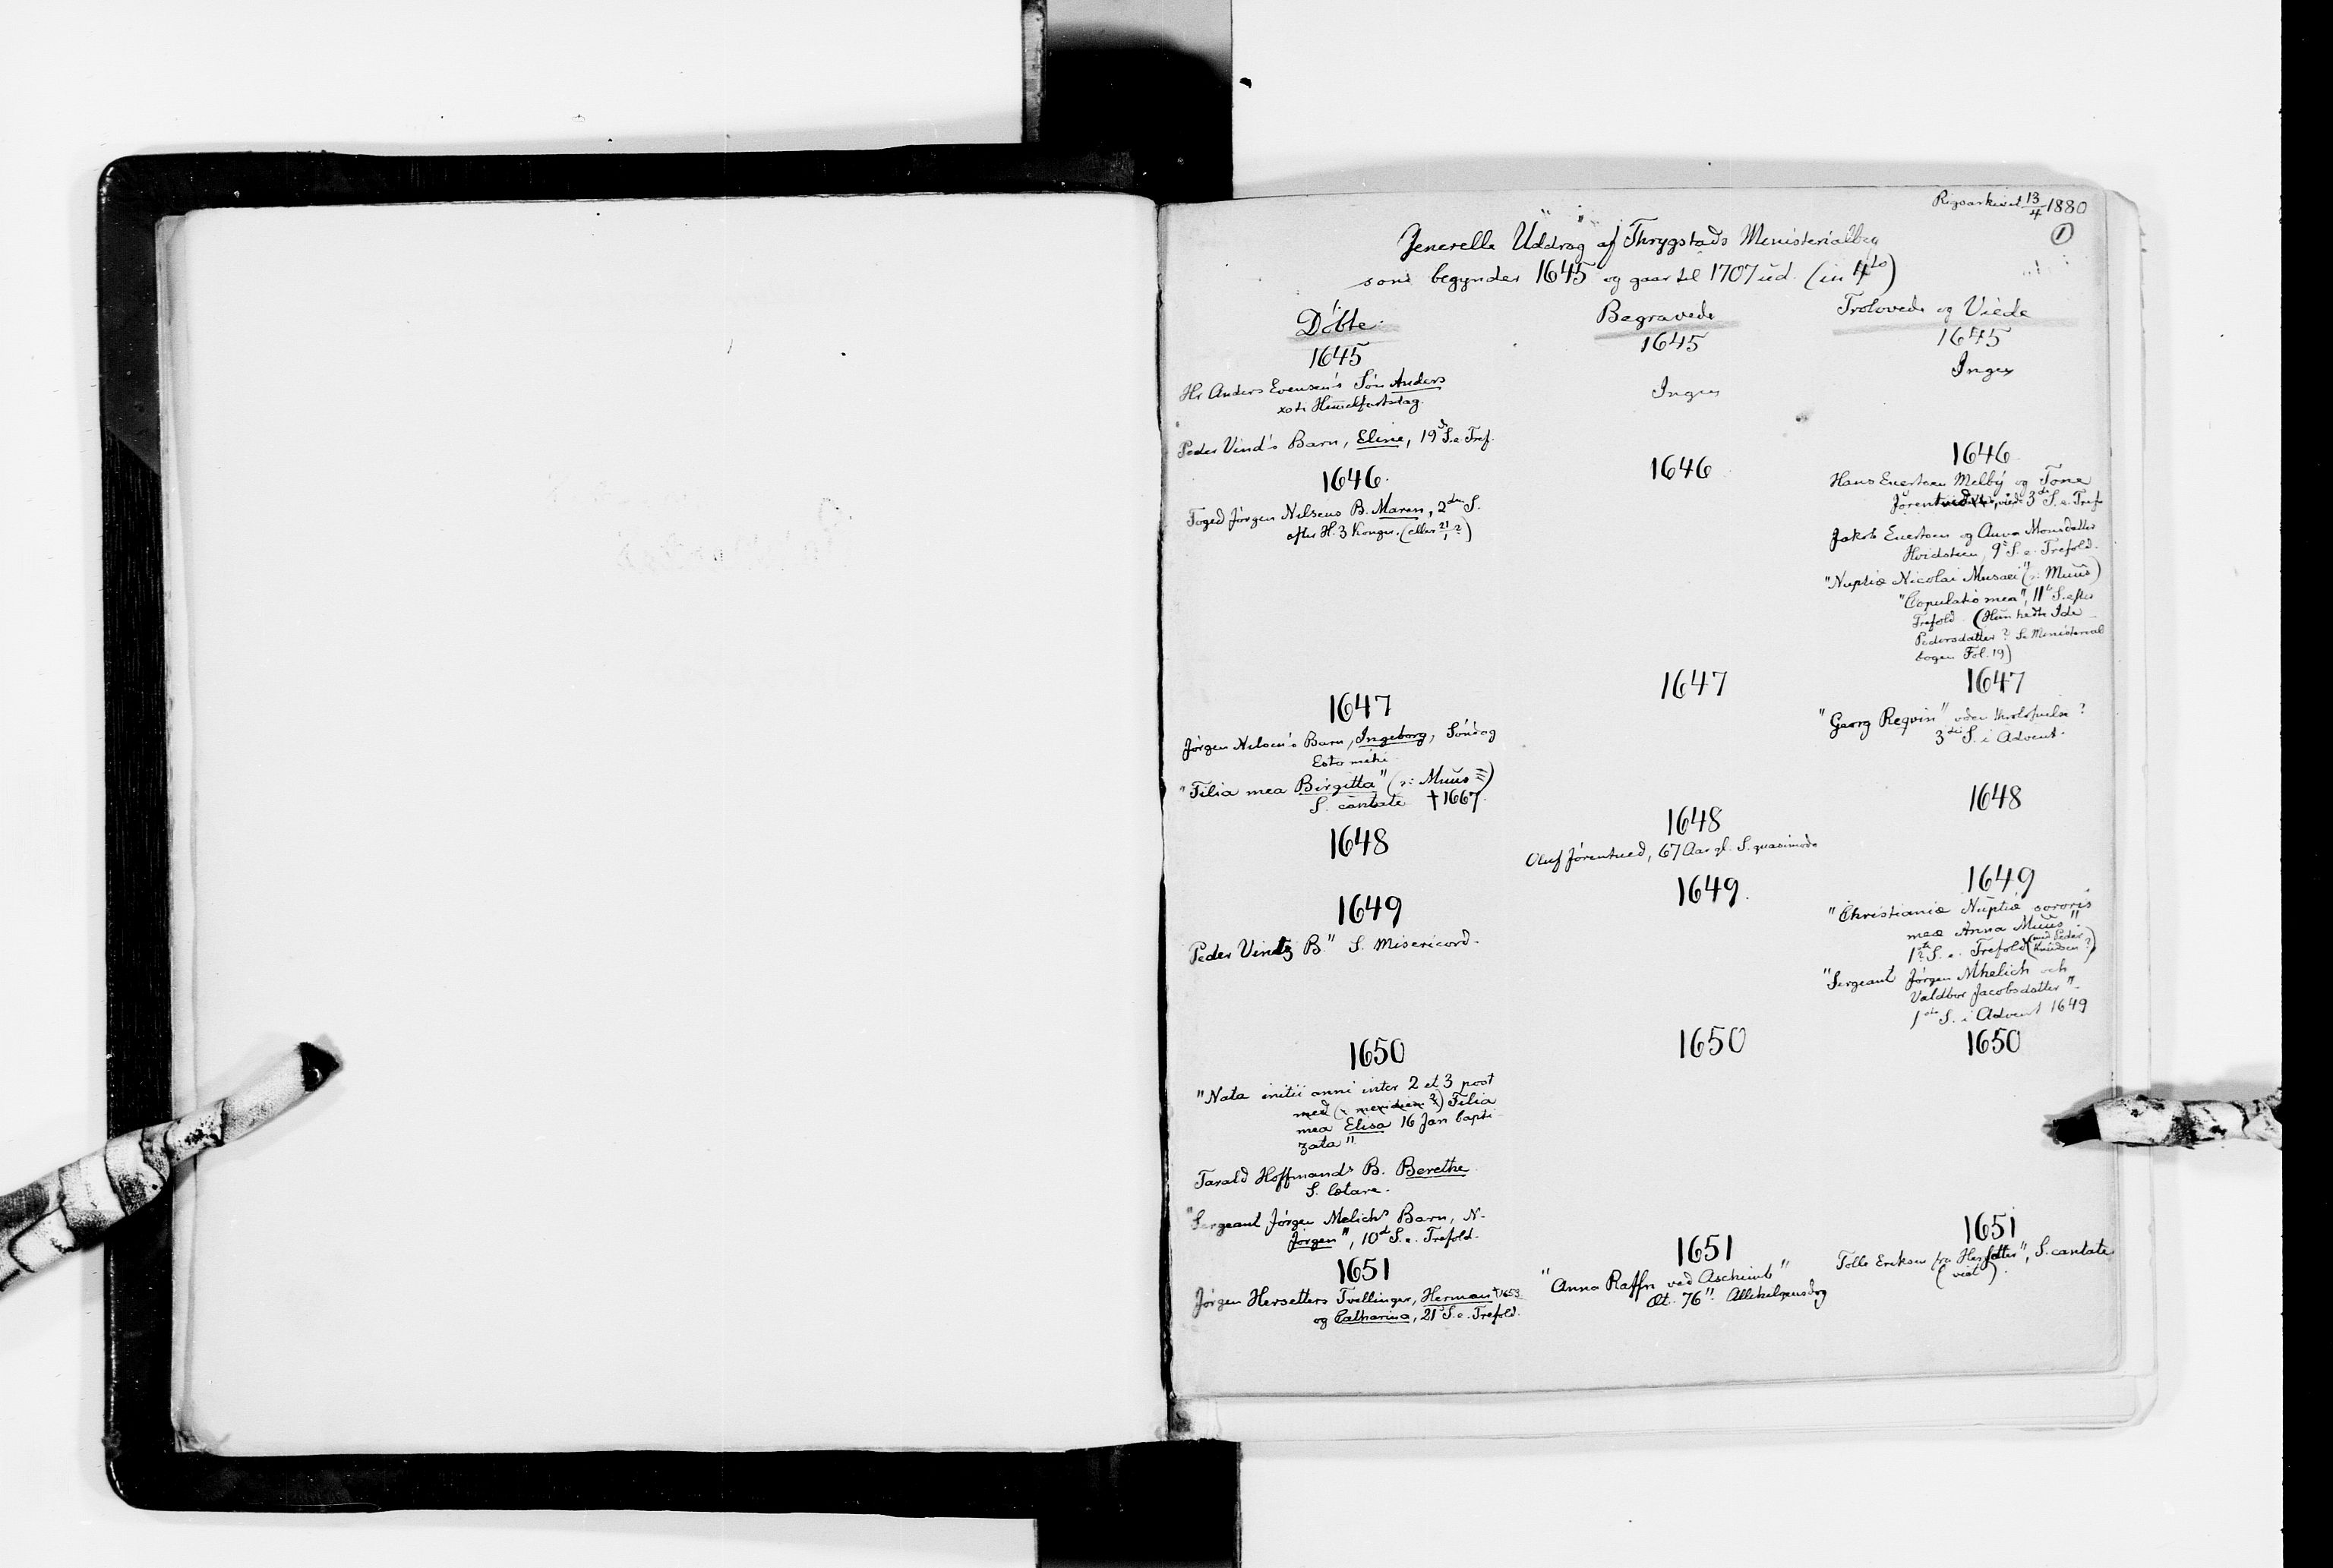 Rigsarkivet 13/4 1880
1
Generelle Uddrag af Thrygstads Ministerialbog
som begynder 1645 og gaar til 1707 ud. (in 4to)
Döbte.
1645
Hr Anders Evensen's Sön Anders
Himelfartsdag.
Peder Vind's Barn, Eline, 19de S. e. Tref.
1646.
Foged Jörgen Nilsens B. Maren, 2den S.
efter H. 3 Konger. (eller 21/1?)
1647
Jörgen Nilsen's Barn, Ingeborg, Söndag
Esto mihi
"Filia mea Birgitta" (ɔ: Muus)
S. cantate †1667.
1648
1649
Peder Vindz B." S. Misericord.
1650
"Nata initii anni inter 2 et 3 post
med (ɔ: meridiem?) Filia
mea Elisa 16 Jan bapti-
zata"
Tarald Hoffmands B. Berethe
S. lætare.
"Sergeant Jörgen Melichs Barn, N.
Jörgen", 10de S. e. Trefold.
1651
Jörgen Hersetters Tvillinger, Herman †1653
og Catharina, 21 S. e. Trefold.
Begravede
1645
Ingen
1646
1647
1648
Oluf Jörentved, 67 Aar gl. S. quasimodo
1649.
1650
1651
"Anna Raffn ved Aschimb"
Æt. 76". Allehelgensdag
Trolovede og Viede
1645
Ingen
1646
Hans Euertsen Melby og Tone
3de S. e. Tref.
Jakob Euertsen og Anna Monsdatter
Hvidsteen, 9de S. e. Trefold.
"Nuptiæ Nicolai Musæi" (ɔ: Muus)
"Copulatio mea", 11te S. efter
Trefold. (Hun hedte Ide
Pedersdatter? Se Ministerial
bogen Fol. 19)
1647
"Georg Reqvin" uden Throlofvelse?
3die S. i Advent.
1648
1649
"Christianiæ Nuptiæ sororis
meæ Anna Muus"
1ste S. e. Trefold (med Peder
Knudsen?)
"Sergeant Jörgen Mhelich och
Valdbor Jacobsdatter"
1ste S. i Advent 1649
1650
1651
Tolle Eriksen fra Hersetter", S. cantate
(viet)